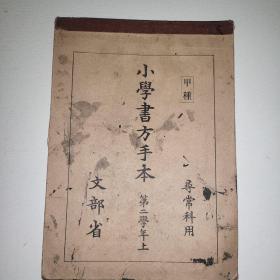 甲種
尋常科用
小學書方手本
第二學年上
文部省